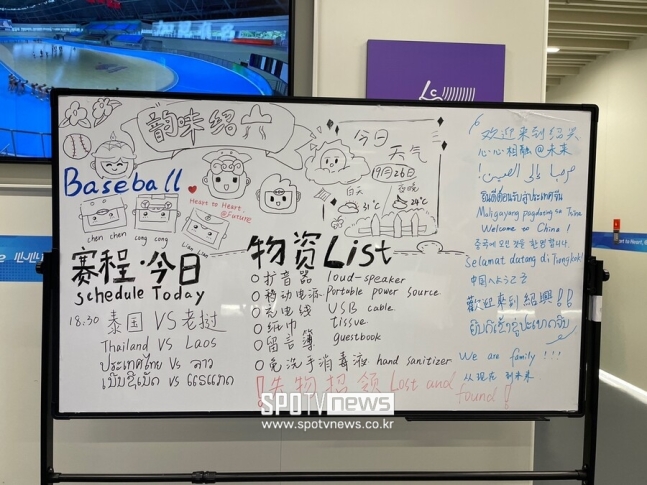 韵味绍兴
Baseball
Heart to Heart,
@Future
chen chen
cong cong
Lian Lian
赛程·今日
schedule Today
18:30 泰国 VS 老挝
Thailand VS Laos
ประเทศไทย vs ลาว
今日
天气
9月26日
白天
31℃
24℃
物资List
扩音器 loud-speaker
移动电源 Portable power source
充电线 USB cable
纸巾 tissue
留言簿 guestbook
免洗手消毒液 hand sanitizer
失物招领 Lost and found!
欢迎来到绍兴
心心相融@未来
Maligayang pagdating sa Tsina
Welcome to China!
중국에 오신 것을 환영합니다.
Selamat datang di Tiongkok!
中国へようこそ
歡迎來到紹興!!
We are family!!!
从现在 到未来
SPOTVnews
www.spotvnews.co.kr